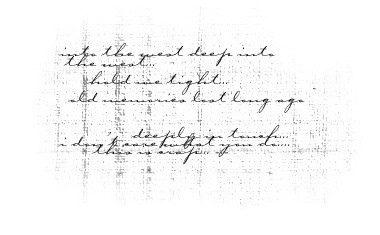 into the west deep into
the west...
hold me tight...
old memories lost long ago
deeply in
i don't care what you do....
this is